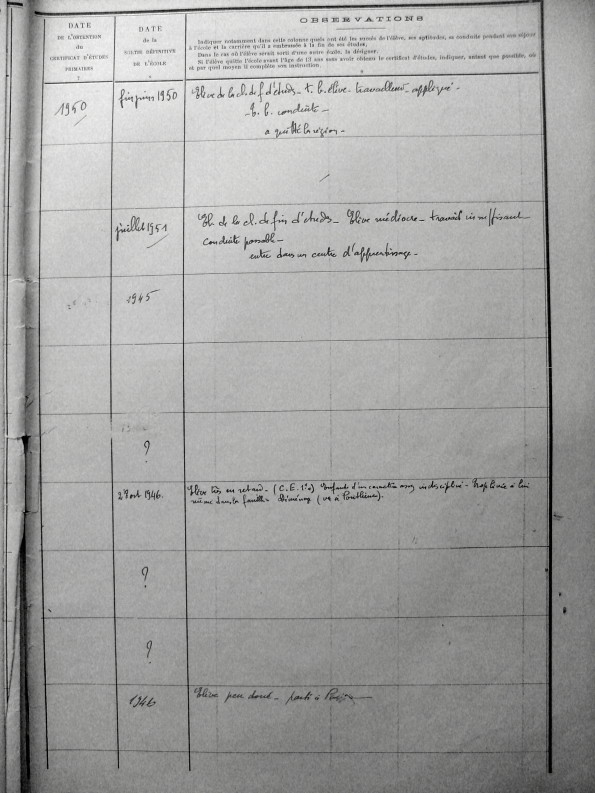 DATE
DE L'OBTENTION
du
CERTIFICAT D'ÉTUDES
PRIMAIRES
7
DATE
de la
SORTIE DÉFINITIVE
DE L'ÉCOLE
8
OBSERVATIONS
Indiquer notamment dans cette colonne quels ont été les succès de l'élève, ses aptitudes, sa conduite pendant son séjour
à l'école et la carrière qu'il a embrassée à la fin de ses études.
Dans le cas où l'élève serait sorti d'une autre école, la désigner.
Si l'élève quitte l'école avant l'âge de 13 ans sans avoir obtenu le certificat d'études, indiquer, autant que possible, où
et par quel moyen il complète son instruction.
9
1950
fin juin 1950
Elève de la cl. de f. d'études - t. b. élève - travailleur - appliqué -
- T. b. conduite -
a quitté la région -
juillet 1951
El. de la cl. de fin d'études - Elève médiocre - travail insuffisant
conduite passable -
entre dans un centre d'apprentissage -
1945
?
1946.
Elève très en retard - (C.E. 1e a) Enfant d'un caractère assez indiscipliné -
dans la famille. Déménage (va à
?
?
1946
Elève peu doué - parti à